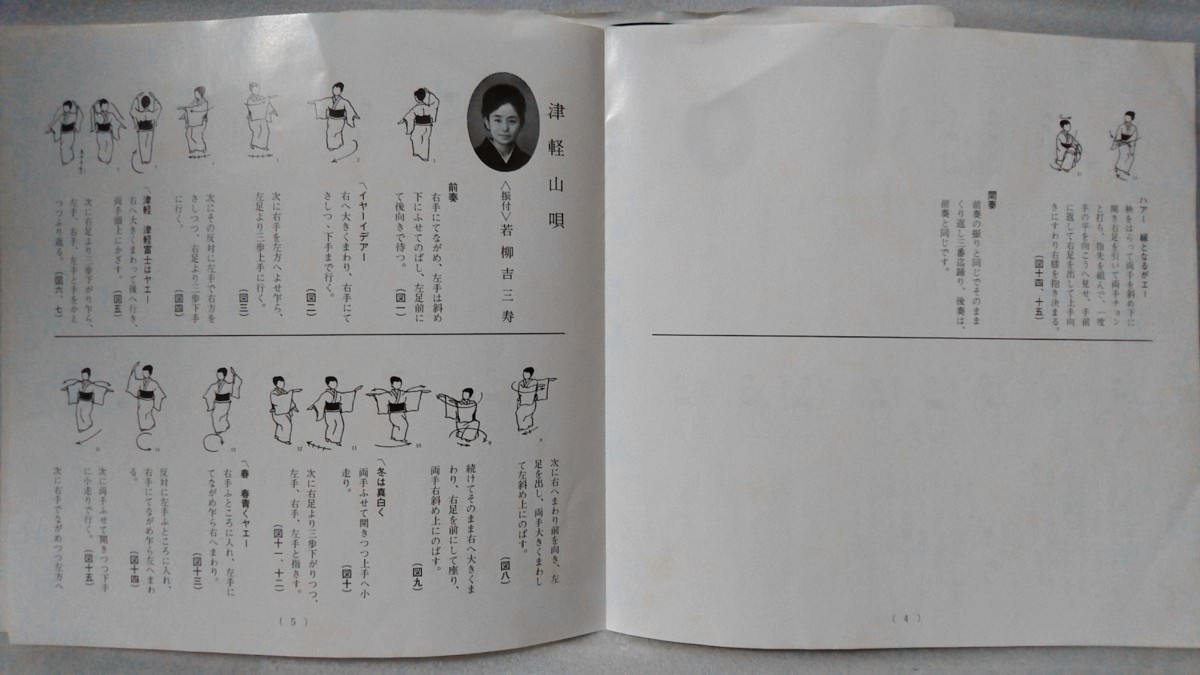 ハアー 縁となるがエー
袂をはらって両手を斜め下に
開き右足を引いて両手チョン
と打ち、指先を組んで、一度
手の平を向こうへ見せ、手前
に返して右足を出して上手向
きにすわり右膝を抱き決まる。
(図十四、十五)
間奏
前奏の振りと同じでそのまま
くり返し三番迄踊り、後奏は、
前奏と同じです。
( 4 )
津軽山唄
〈振付〉若柳吉三寿
前奏
右手にてながめ、左手は斜め
下にふせてのばし、左足前に
て後向きで待つ。
(図一)
〽イヤーイデアー
右へ大きくまわり、右手にて
さしつゝ下手まで行く。
(図二)
次に右手を左方へよせ乍ら、
左足より三歩上手に行く。
(図三)
次にその反対に左手で右方を
さしつつ、右足より三歩下手
に行く。
(図四)
〽津軽 津軽富士はヤエー
右へ大きくまわって後へ行き、
両手頭上にかざす。
(図五)
次に右足より三歩下がり乍ら、
左手、右手、左手と手をかえ
つつふり返る。
(図六、七)
次に右へまわり前を向き、左
足を出し、両手大きくまわし
て左斜め上にのばす。
(図八)
続けてそのまま右へ大きくま
わり、右足を前にして座り、
両手右斜め上にのばす。
(図九)
〽冬は真白く
両手ふせて開きつつ上手へ小
走り。
(図十)
次に右足より三歩下がりつつ、
左手、右手、左手と指さす。
(図十一、十二)
〽春 春青くヤエー
右手ふところに入れ、左手に
てながめ乍ら右へまわり。
(図十三)
反対に左手ふところに入れ、
右手にてながめ乍ら左へまわ
る。
(図十四)
次に両手ふせて開きつつ下手
に小走りで行く。
(図十五)
次に右手でながめつつ左方へ
( 5 )